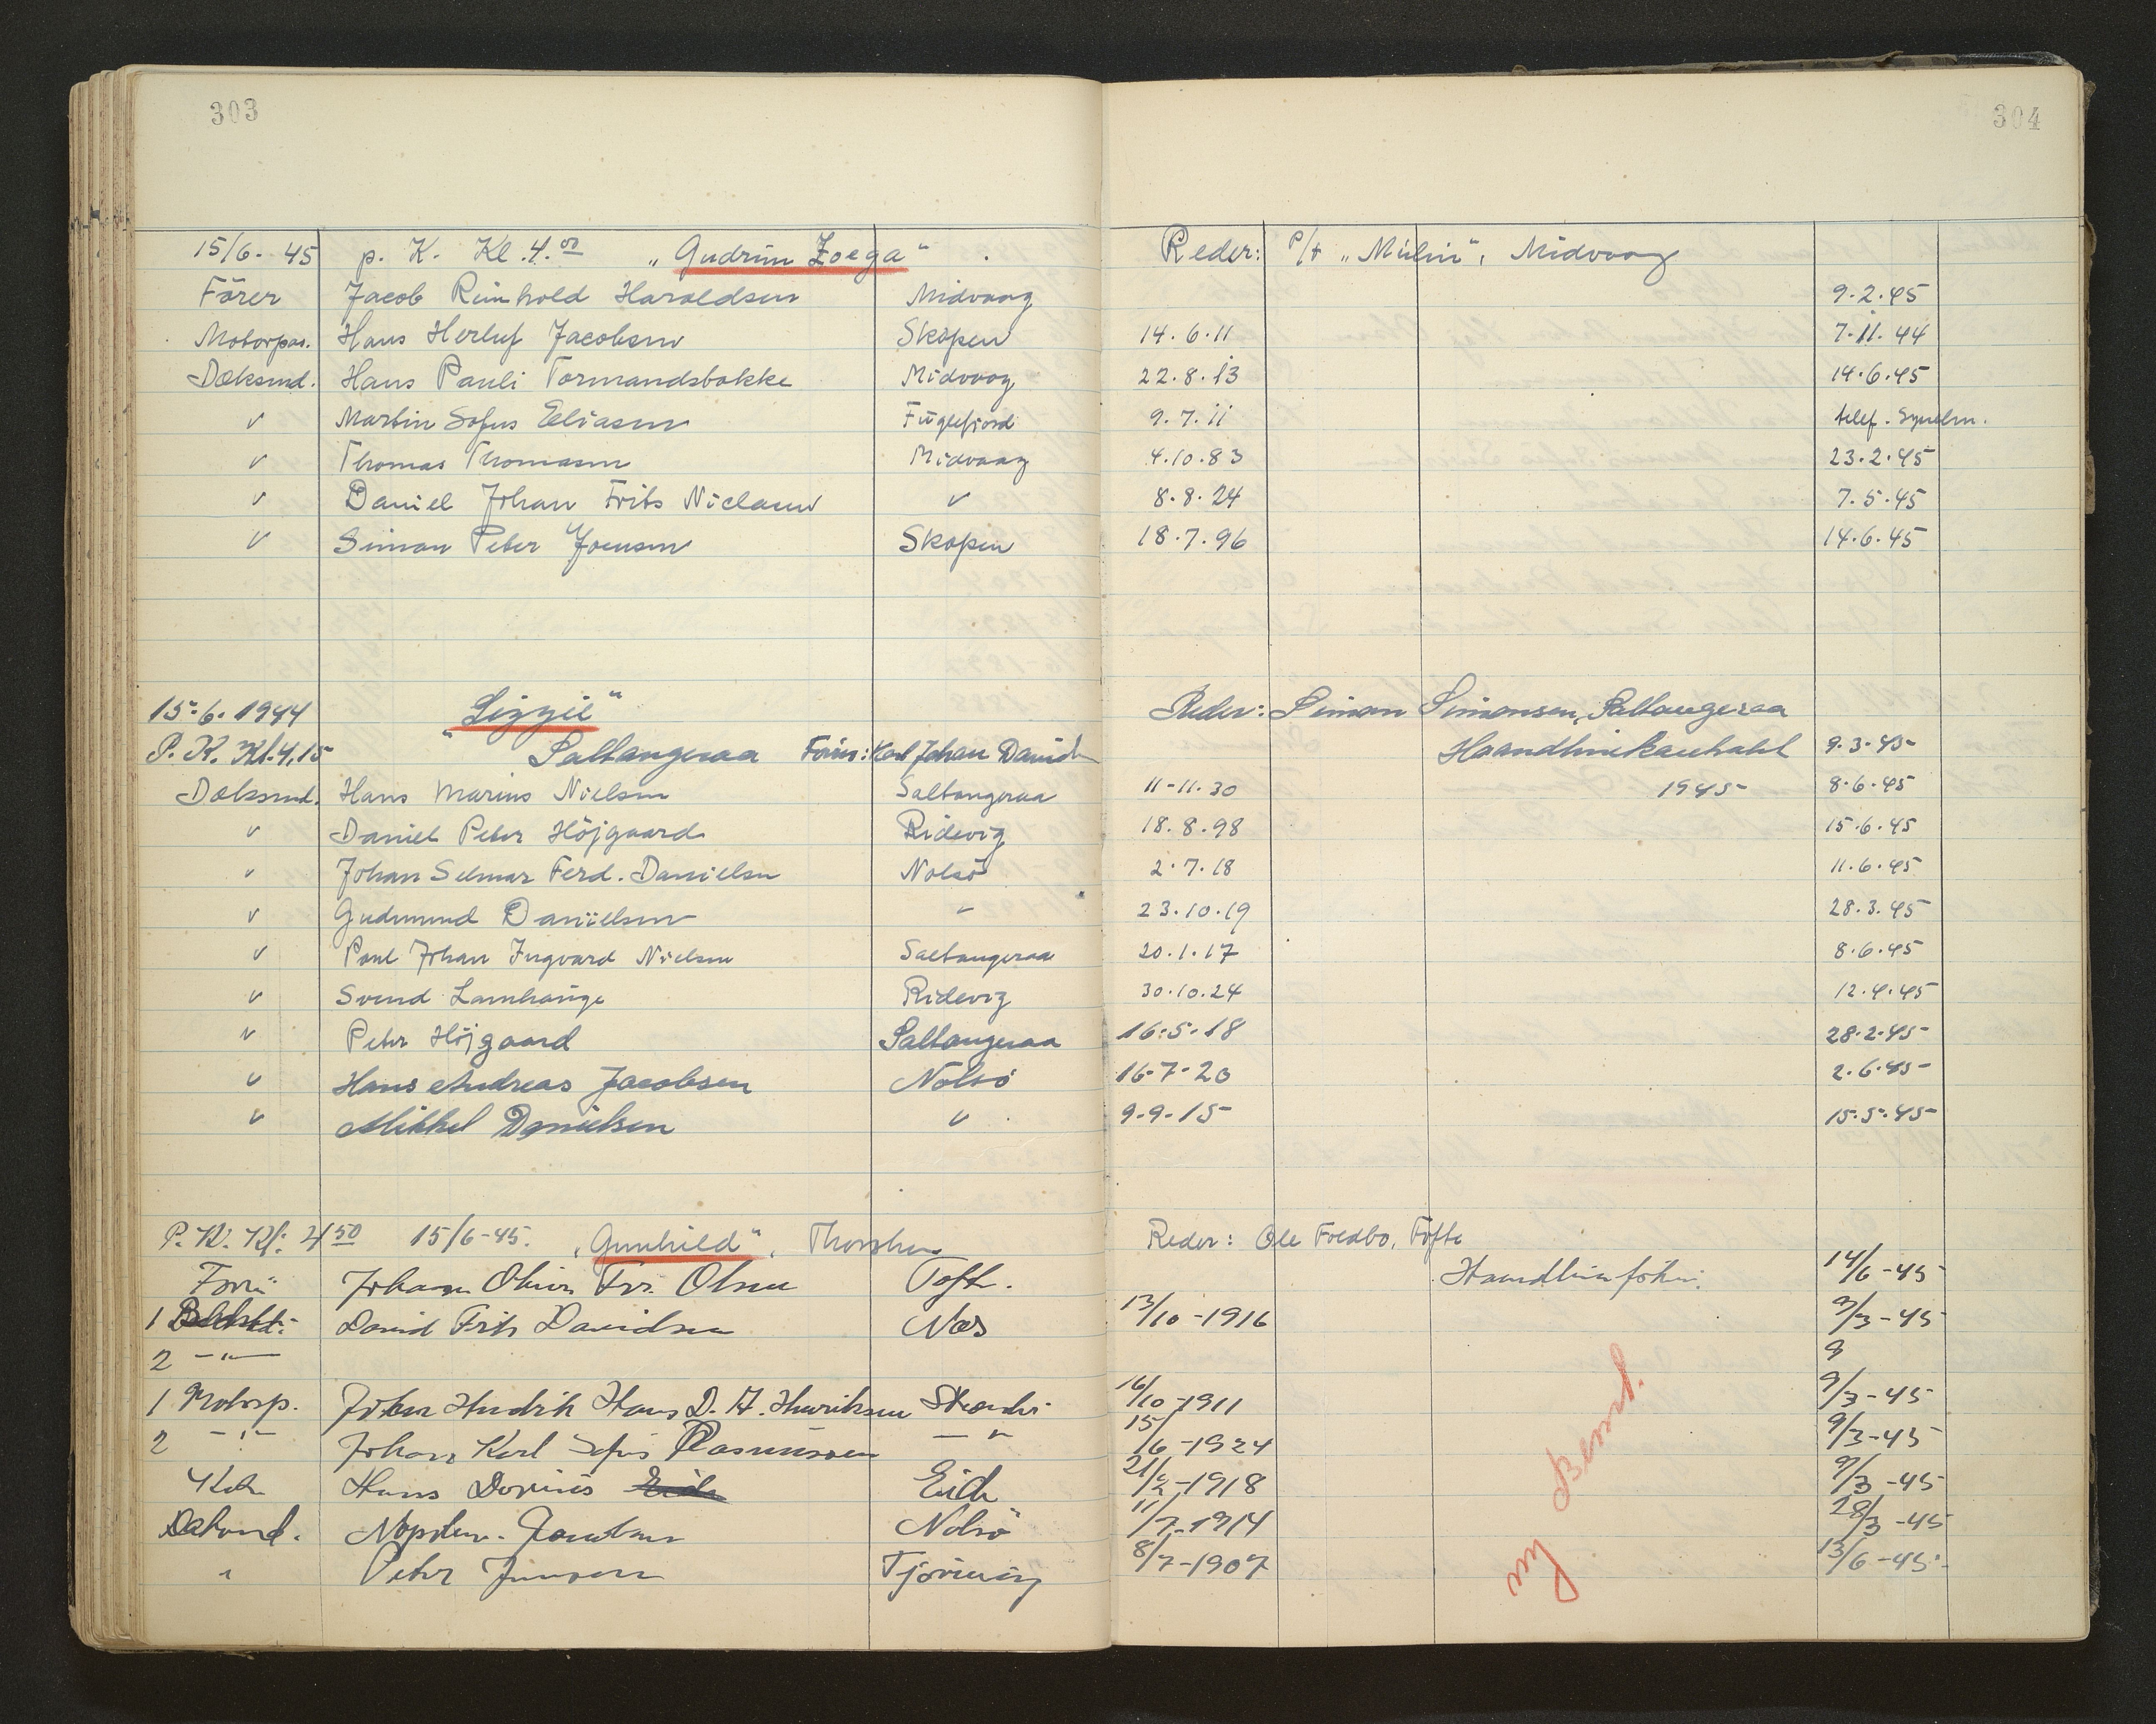 303
304
15/6-45 p. K. Kl. 4.00 „Gudrun Zoega" Reder: P/t „Mulin", Midvaag
Förer Jacob Reinhold Haroldsen Midvaag 9.2.45
Motorpas. Hans Herluf Jacobsen Skopen 14.6.11 7.11.44
Dæksmd. Hans Pauli Formandsbakke Midvaag 22.8.13 14.6.45
" Martin Sofus Eliasen Fuglefjord 9.7.11 telef.
" Thomas Thomasen Midvaag 4.10.83 23.2.45
" Daniel Johan Frits Niclasen " 8.8.24 7.5.45
" Simon Peter Joensen Skopen 18.7.96 14.6.45
15.6.1944 „Lizzie" Reder: Simon Simonsen, Saltangeraa
P. K. Kl. 4.15 Saltangeraa Förer: Karl Johan David 9.3.45
Dæksmd. Hans Marius Nielsen Saltangeraa 11-11.30 1945 8.6.45
" Daniel Peter Höjgaard Ridevig 18.8.98 15.6.45
" Johan Selmar Ferd. Danielsen Nolsö 2.7.18 11.6.45
" Gudmund Danielsen " 23.10.19 28.3.45
" Poul Johan Ingvard Nielsen Saltangeraa 20.1.17 8.6.45
" Svend Lamhauge Ridevig 30.10.24 12.4.45
" Peter Höjgaard Saltangeraa 16.5.18 28.2.45
" Hans Andreas Jacobsen Nolsö 16-7-20 2.6.45
" Mikkel Danielsen " 9-9-15 15.5.45
P. K. Kl. 4 50 15/6-45. „Gunhild", Thorshavn Reder: Ole Foldbo, Tofte
Förer Johan Oliver Fr. Olsen Tofte. 14/6-45
1 David Frits Davidsen Næs 13/10-1916 9/3-45
2 -"- 9
1 Motorp. Johan Hendrik Hans D. A. Henriksen 16/10-1911 9/3-45
2 -"- Johan Karl Sofus Rasmussen -"- 15/6-1924 9/3-45
Kok Hans Dorinus Eide 21/2-1918 9/3-45
Daksmd. Jacobsen Nolsö 11/7-1914 28/3-45
" Peter Jensen Tjörnevig 8/7-1907 13/6-45